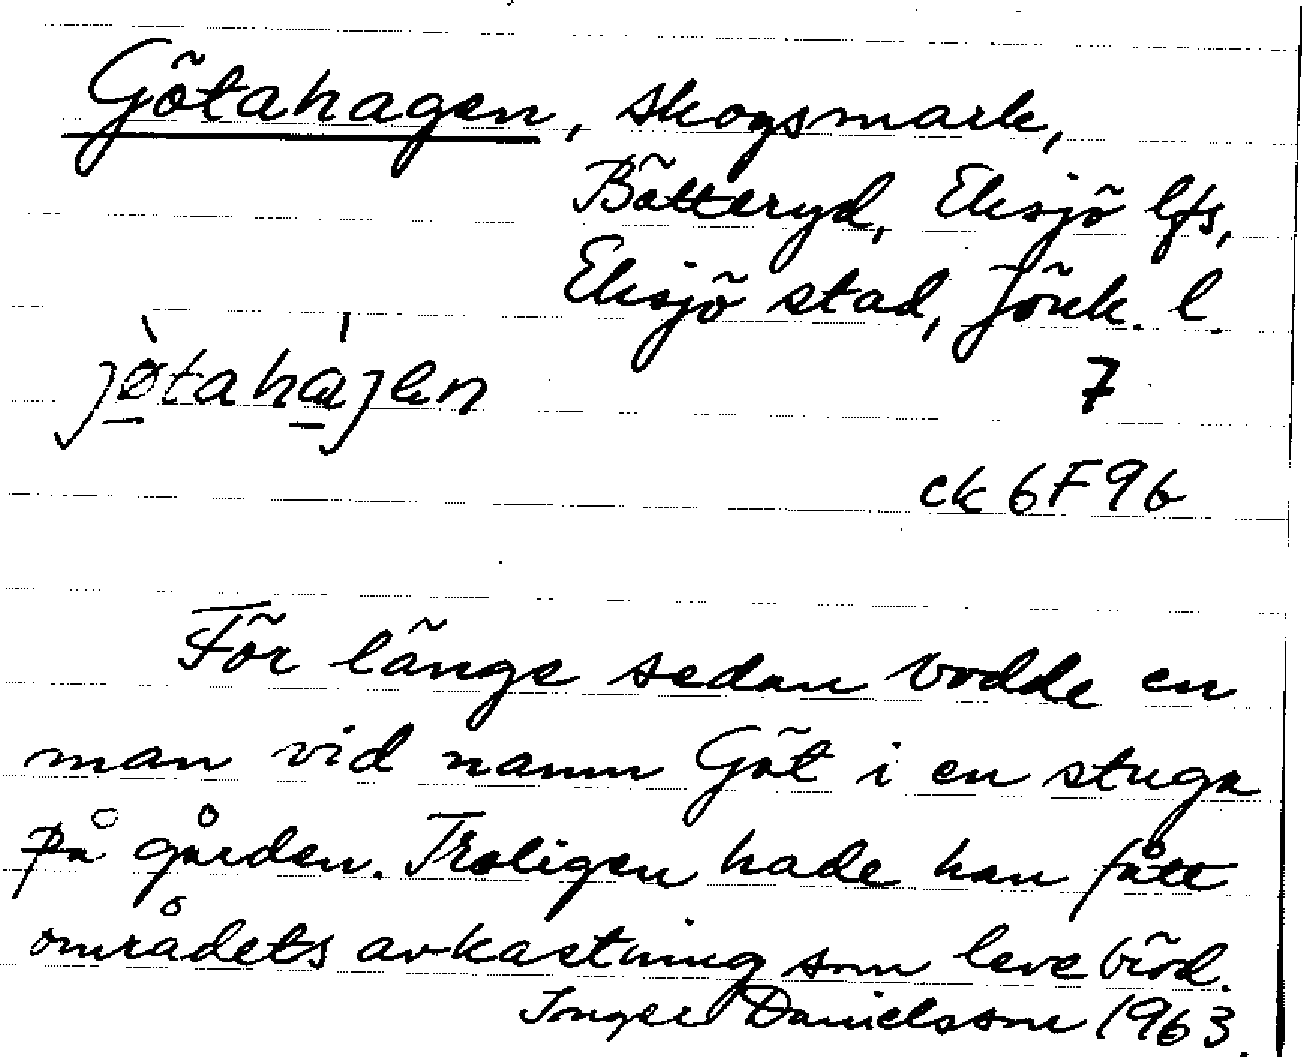 Götahagen, skogsmark,
Bätteryd, Eksjö lfs,
Eksjö stad, Jönk. l.
jø̀tahájen
7
ck 6F9b
För länge sedan bodde en
man vid namn Göt i en stuga
på gården. Troligen hade han fått
områdets avkastning som levebröd.
Inger Danielsson 1963.